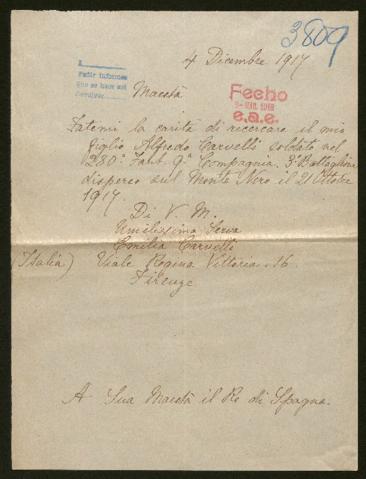 3809
4 Dicembre 1917
Pedir informes
que se hace mi
Fecho
E.A.E.
Maestà
Fatemi la carità di ricercare il mio
figlio Alfredo Carvelli soldato nel
280º Fant. 9ª Compagnia. 3º Battaglione
disperso sul Monte Nero il 21 Ottobre
1917.
Di V. M.
Umilissima Serva
Emilia Carvelli
Italia) Viale Regina Vittoria. 16
Firenze
A Sua Maestà il Re di Spagna.